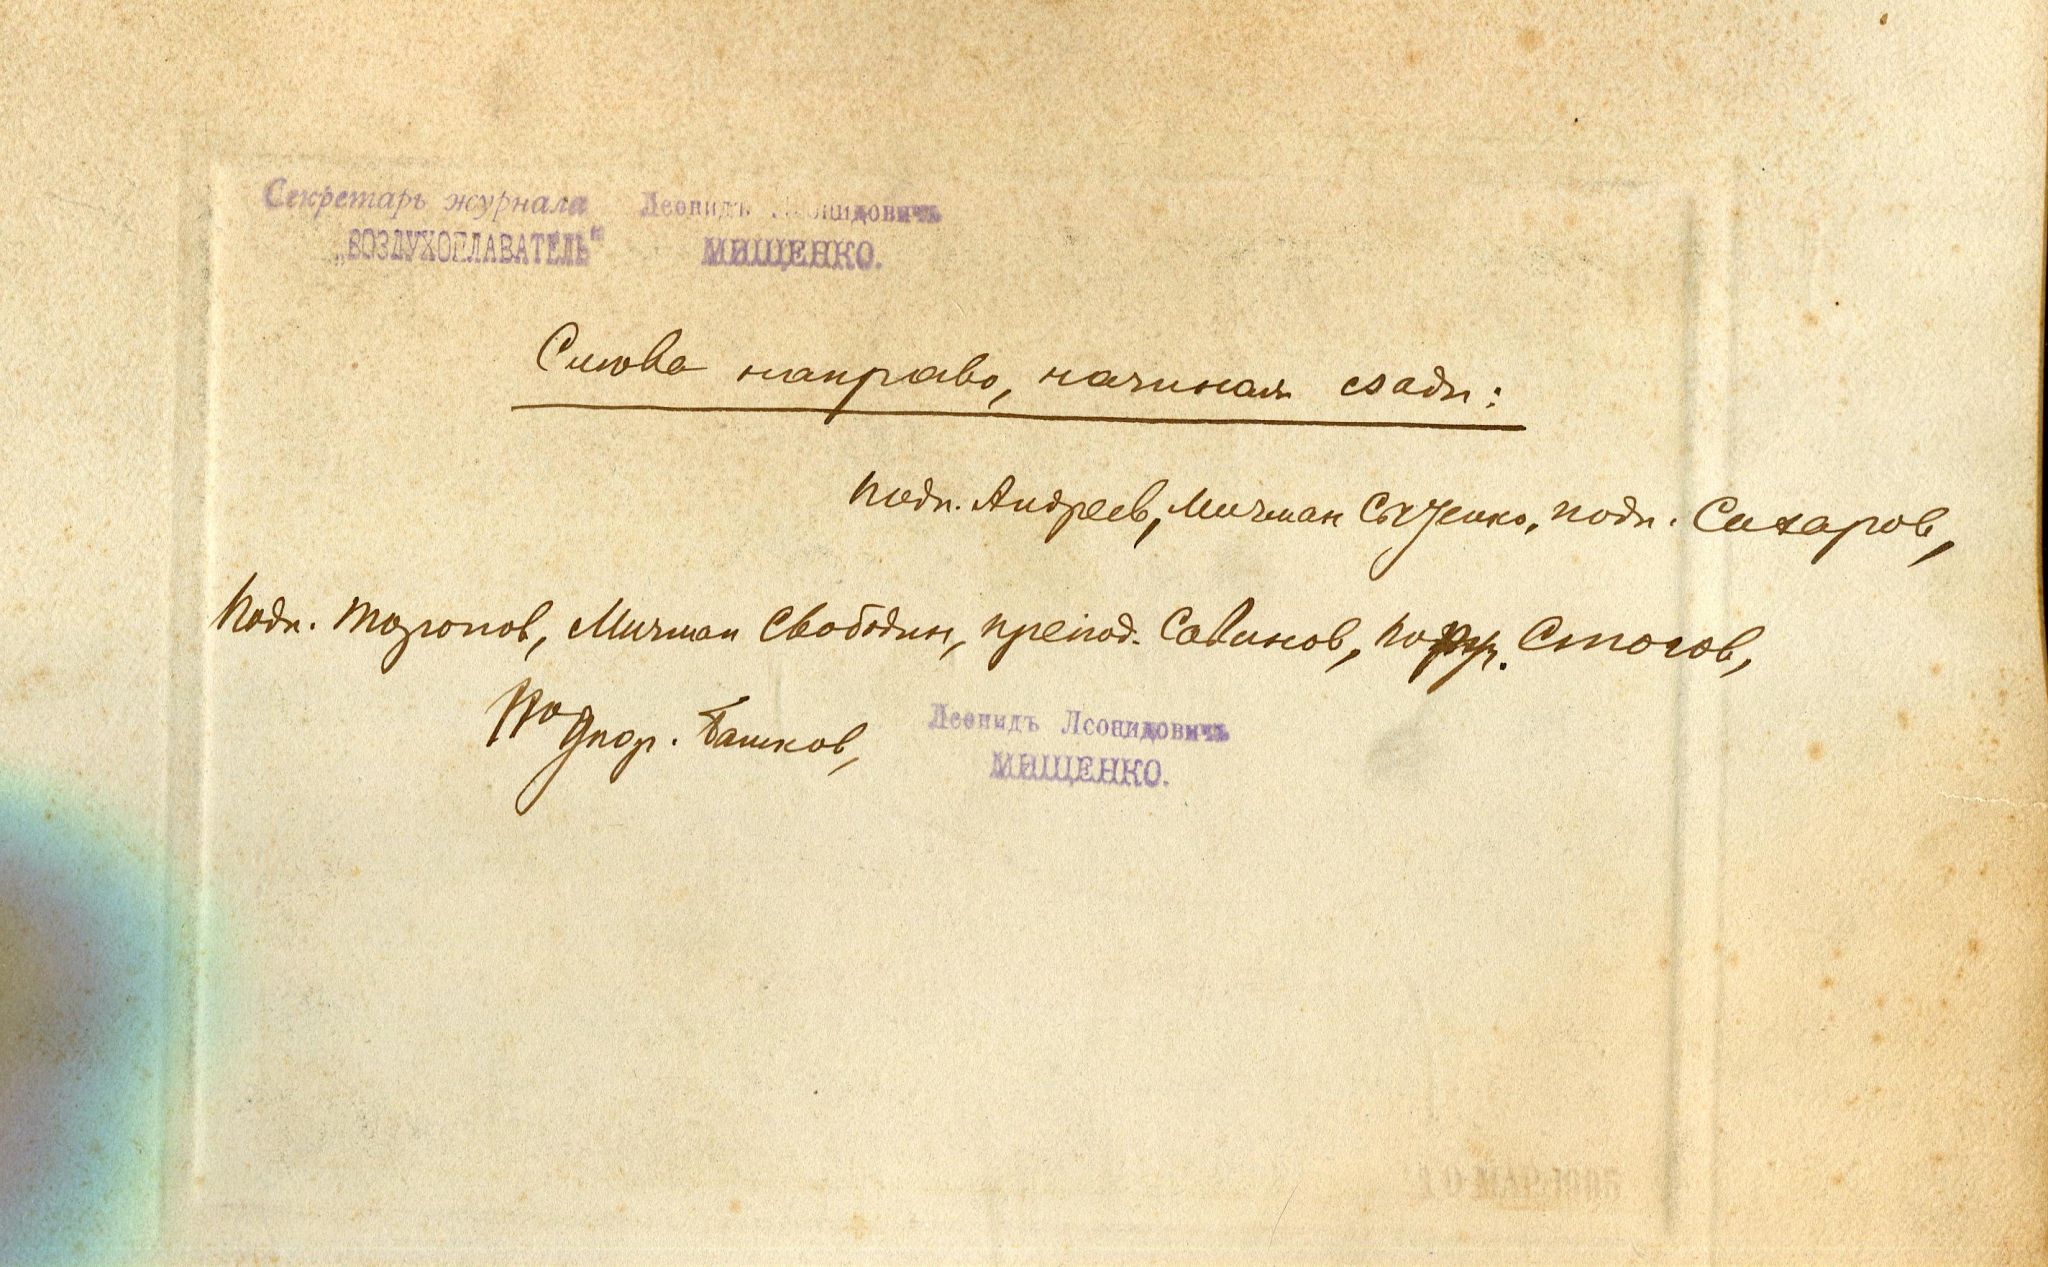 Секретарь журнала
„ВОЗДУХОПЛАВАТЕЛЬ“
Леонидъ Леонидовичъ
МИЩЕНКО.
Слова направо, начиная сзади:
подп. Андреев, Мичман подп. Сахаров,
подп. Мичман Свободин, препод. Сабинов, Стогов,
Башков,
Леонидъ Леонидовичъ
МИЩЕНКО.